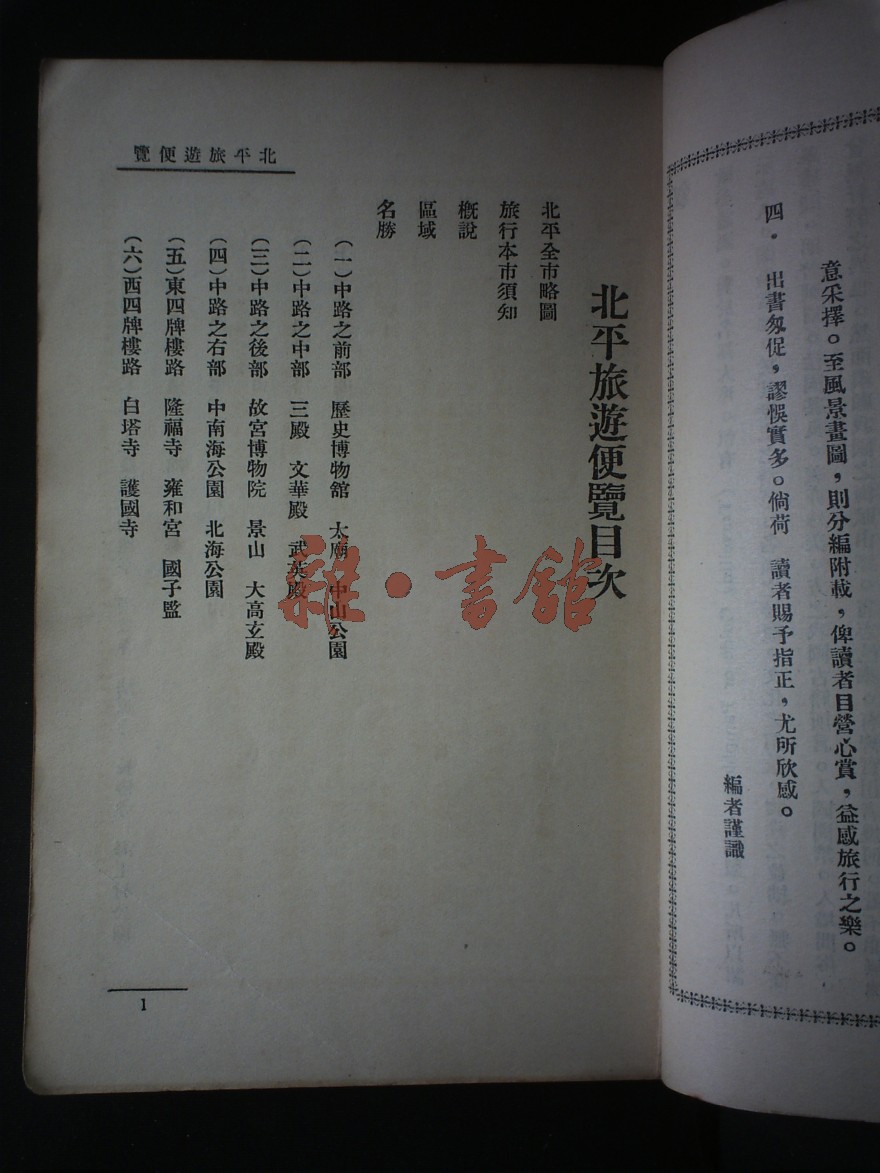 意采擇。至風景畫圖，則分編附載，俾讀者目營心賞，益感旅行之樂。
四．　出書匆促，謬悞實多。倘荷　讀者賜予指正，尤所欣感。
編者謹識
北平旅遊便覽
北平旅遊便覽目次
北平全市略圖
旅行本市須知
概說
區域
名勝
（一）中路之前部　歷史博物館　太廟　中山公園
（二）中路之中部　三殿　文華殿　武英殿
（三）中路之後部　故宮博物院　景山　大高玄殿
（四）中路之右部　中南海公園　北海公園
（五）東四牌樓路　隆福寺　雍和宮　國子監
（六）西四牌樓路　白塔寺　護國寺
1
雜·書館